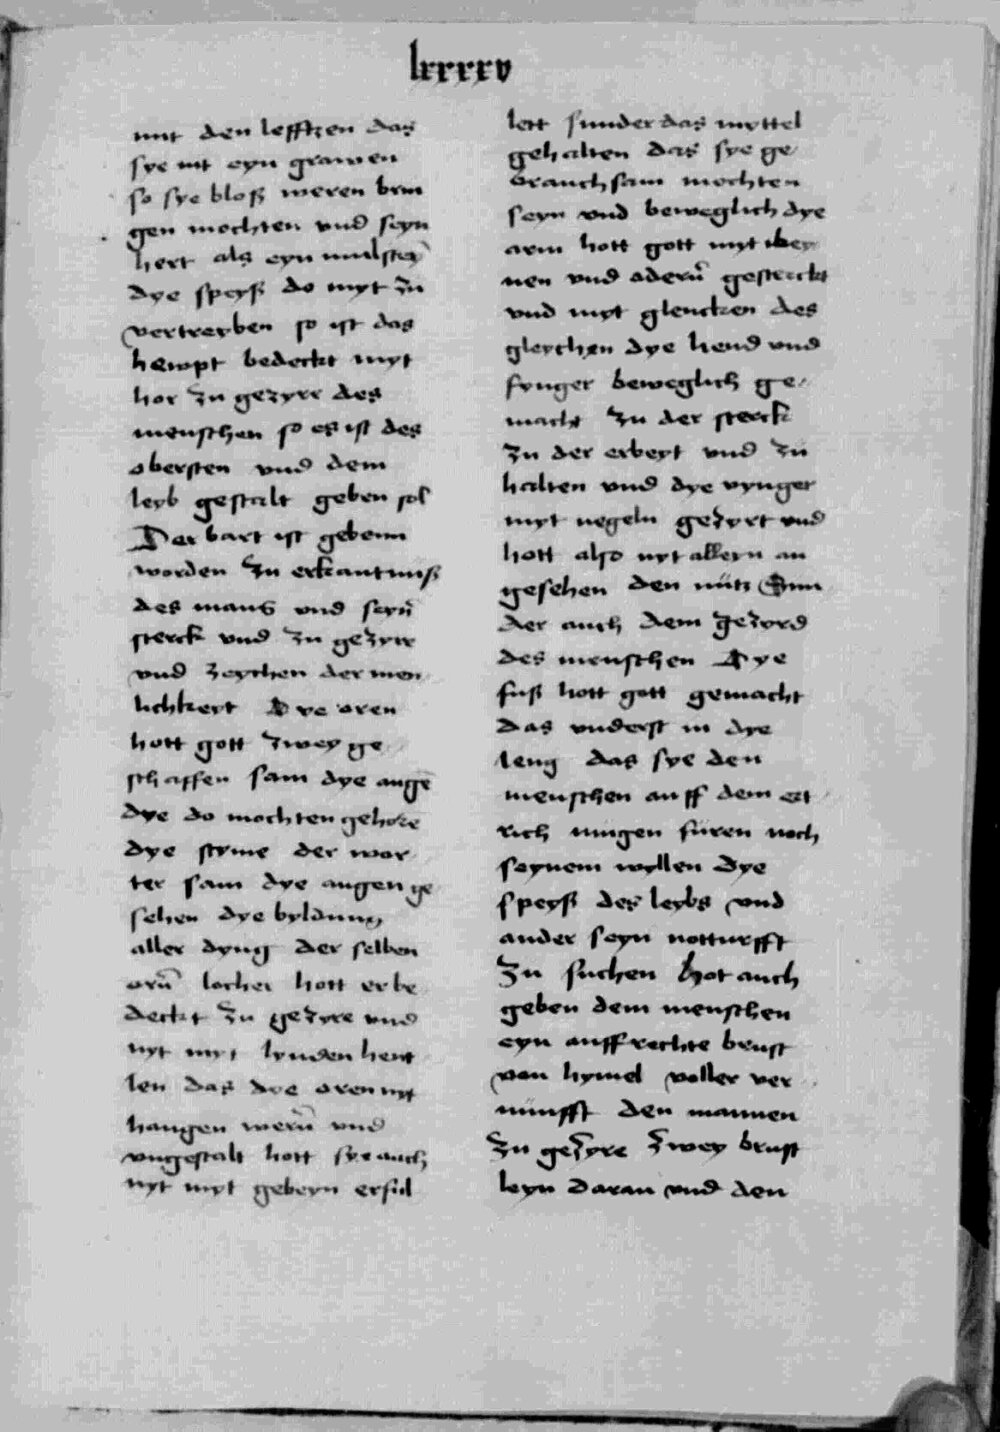 lxxxxv
mit den lefftzen das
sye nit eyn grawen
so sye bloß weren brin
gen mochten vnd seyn
hert als eyn mülsteȳ
dye speyß do myt zu
vertreyben so ist das
hewpt bedeckt myt
hor zu gezyrr des
menschen so es ist des
obersten vnd dem
leyb gestalt geben sol
Der bart ist gebenn
worden zu erkantnuß
des mans vnd seyn̄
sterck vnd zu gezyrr
vnd zeychen der men
lichkeyt Dye oren
hott gott zwey ge
schaffen sam dye augē
dye do mochten gehore
dye styme der wor
ter sam dye augen ge
sehen dye byldung
aller dyng der selben
orn̄ locher hott er be
deckt zu gezyre vnd
nyt myt lynden heut
len das dye oren nyt
hangen wern̄ vnd
vngestalt hott sye auch
nyt myt gebeyn erfül
lett sunder das myttel
gehalten das sye ge
brauchsam mochten
seyn vnd beweglich dye
arm hott gott myt
nen vnd adern̄ gesterckt
vnd myt glencken des
gleychen dye hend vnd
fynger beweglich ge
macht zu der sterck
zu der erbeyt vnd zu
halten vnd dye vynger
myt negeln gezyrt vnd
hott also nyt alleyn an
gesehen den nütz Sun
der auch dem gezyrd
des menschen Dye
fuß hott gott gemacht
das vnderst in dye
leng das sye den
menschen auff dem ert
rich mügen füren noch
seynem wyllen dye
speyß des leybs vnd
ander seyn notturfft
zu suchen Hot auch
geben dem menschen
eyn auffrechte brust
von hymel voller ver
nünfft den mannen
zu gezyre zwey brust
leyn daran vnd den